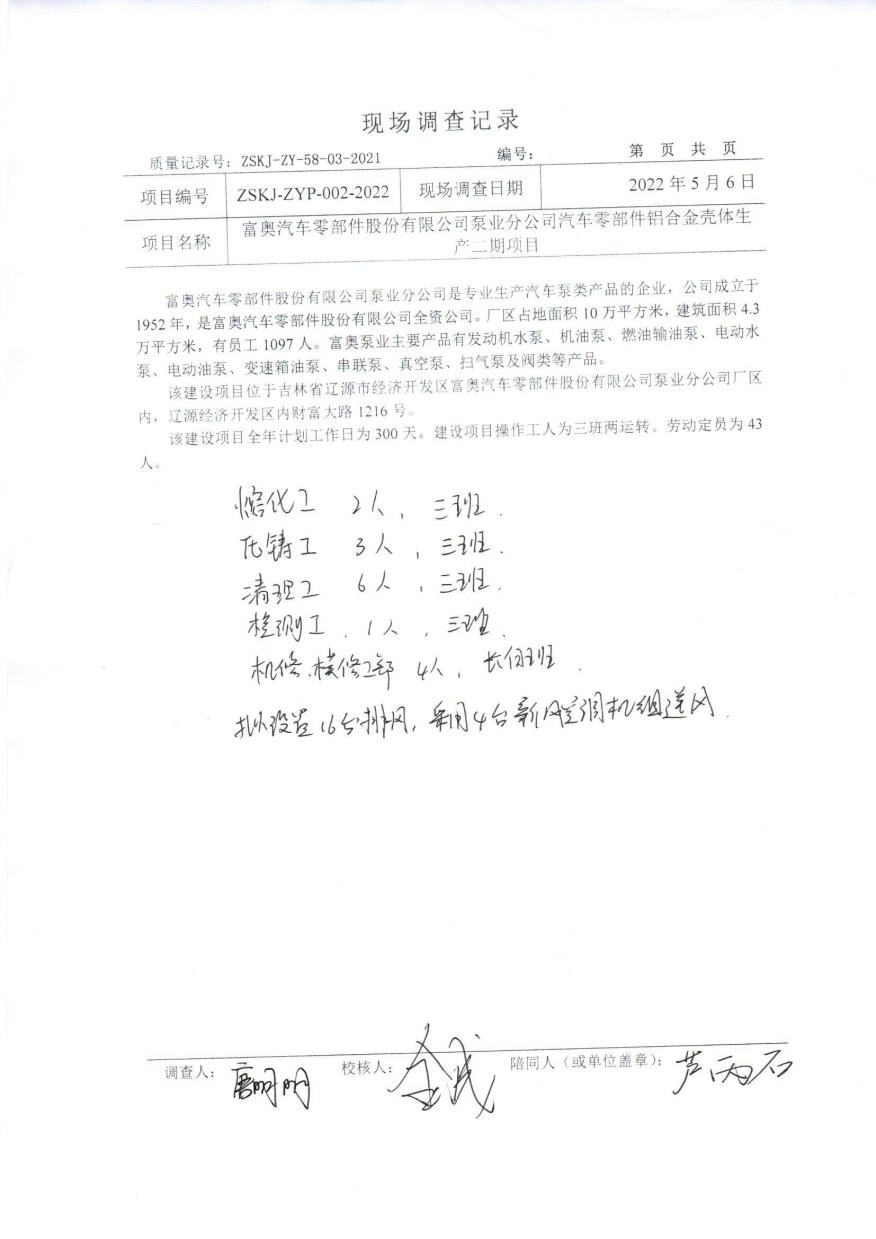 现场调查记录
质量记录号：ZSKJ-ZY-58-03-2021 编号： 第 页 共 页
项目编号 ZSKJ-ZYP-002-2022 现场调查日期 2022 年 5 月 6 日
项目名称 富奥汽车零部件股份有限公司泵业分公司汽车零部件铝合金壳体生
产二期项目
富奥汽车零部件股份有限公司泵业分公司是专业生产汽车泵类产品的企业，公司成立于
1952 年，是富奥汽车零部件股份有限公司全资公司。厂区占地面积 10 万平方米，建筑面积 4.3
万平方米，有员工 1097 人。富奥泵业主要产品有发动机水泵、机油泵、燃油输油泵、电动水
泵、电动油泵、变速箱油泵、串联泵、真空泵、扫气泵及阀类等产品。
该建设项目位于吉林省辽源市经济开发区富奥汽车零部件股份有限公司泵业分公司厂区
内，辽源经济开发区内财富大路 1216 号。
该建设项目全年计划工作日为 300 天。建设项目操作工人为三班两运转。劳动定员为 43
人。
熔化工 2人，三班.
压铸工 3人，三班.
清理工 6人，三班.
检测工. 1人，三班.
机修、模修工部 4人，长白班.
拟设置16台排风，采用4台新风空调机组送风.
调查人： 唐明明 校核人： 陪同人（或单位盖章）： 芦丙石